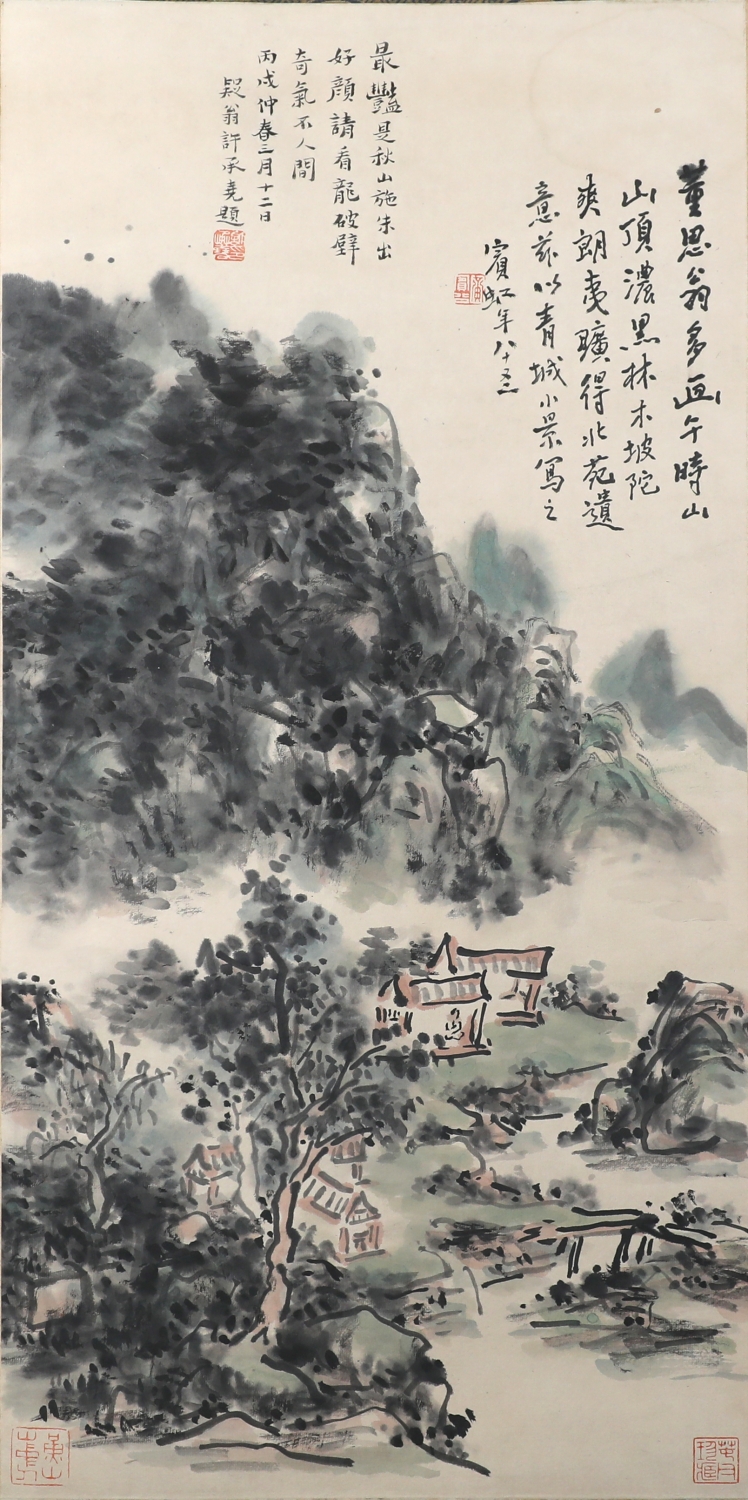 董思翁多画午時山
山頂濃黑林木坡陀
爽朗夷曠得北苑遺
意茲以青城小景寫之
賓虹年八十三
最豔是秋山施朱出
好顏請看龍破壁
奇氣不人間
丙戌仲春三月十二日
疑翁許承堯題